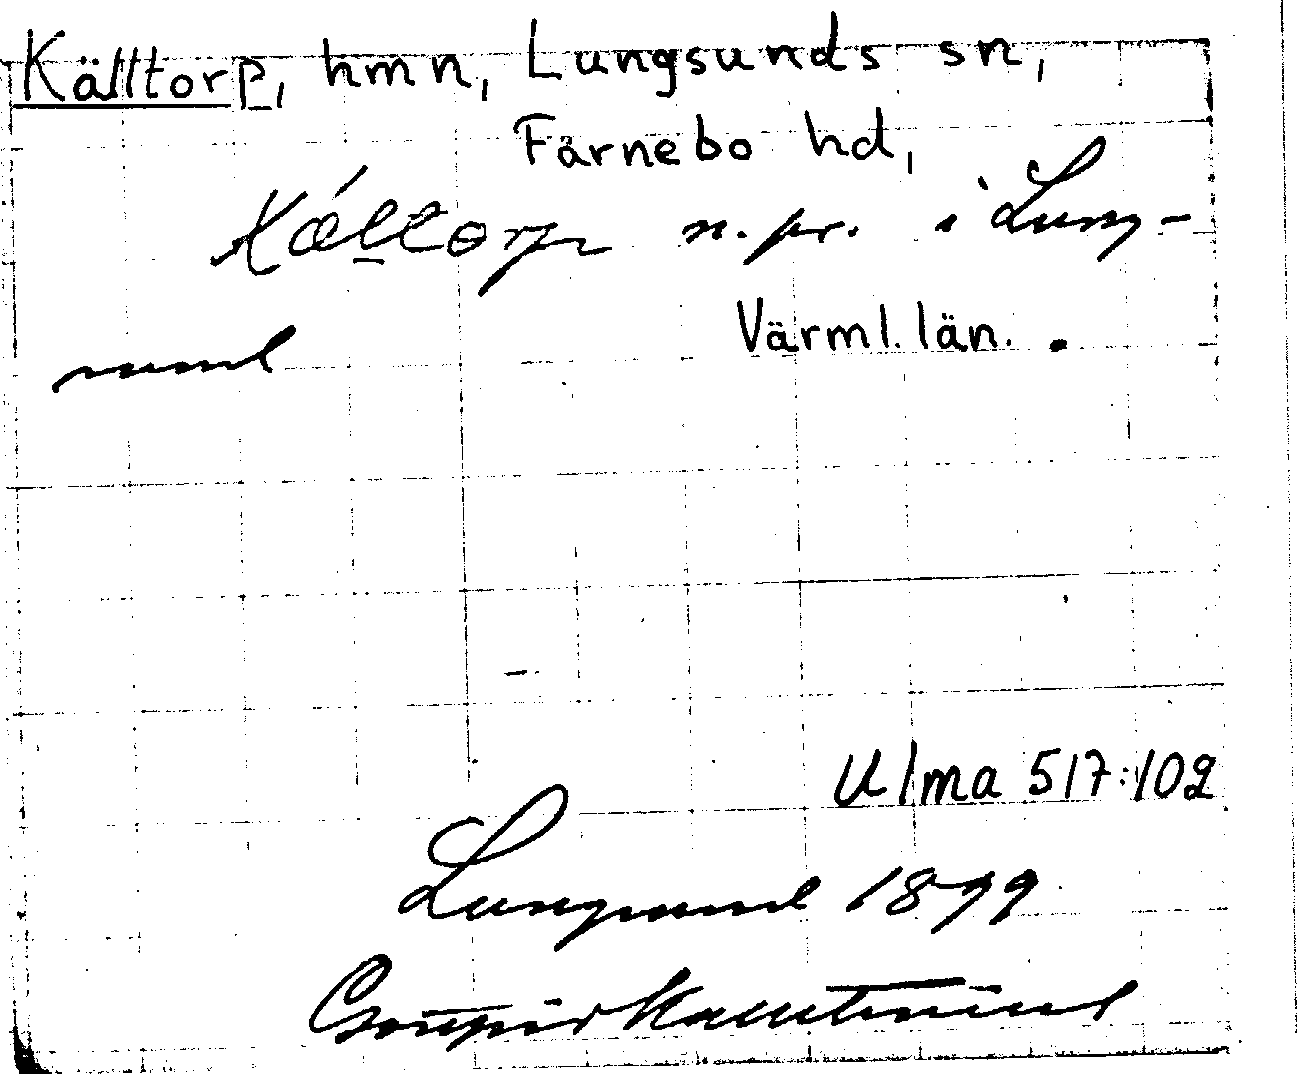 Källtorp, hmn, Lungsunds sn,
Färnebo hd,
n. pr. i Lung-
sund
Värml. län.
Ulma 517:102
Lungsund 1899